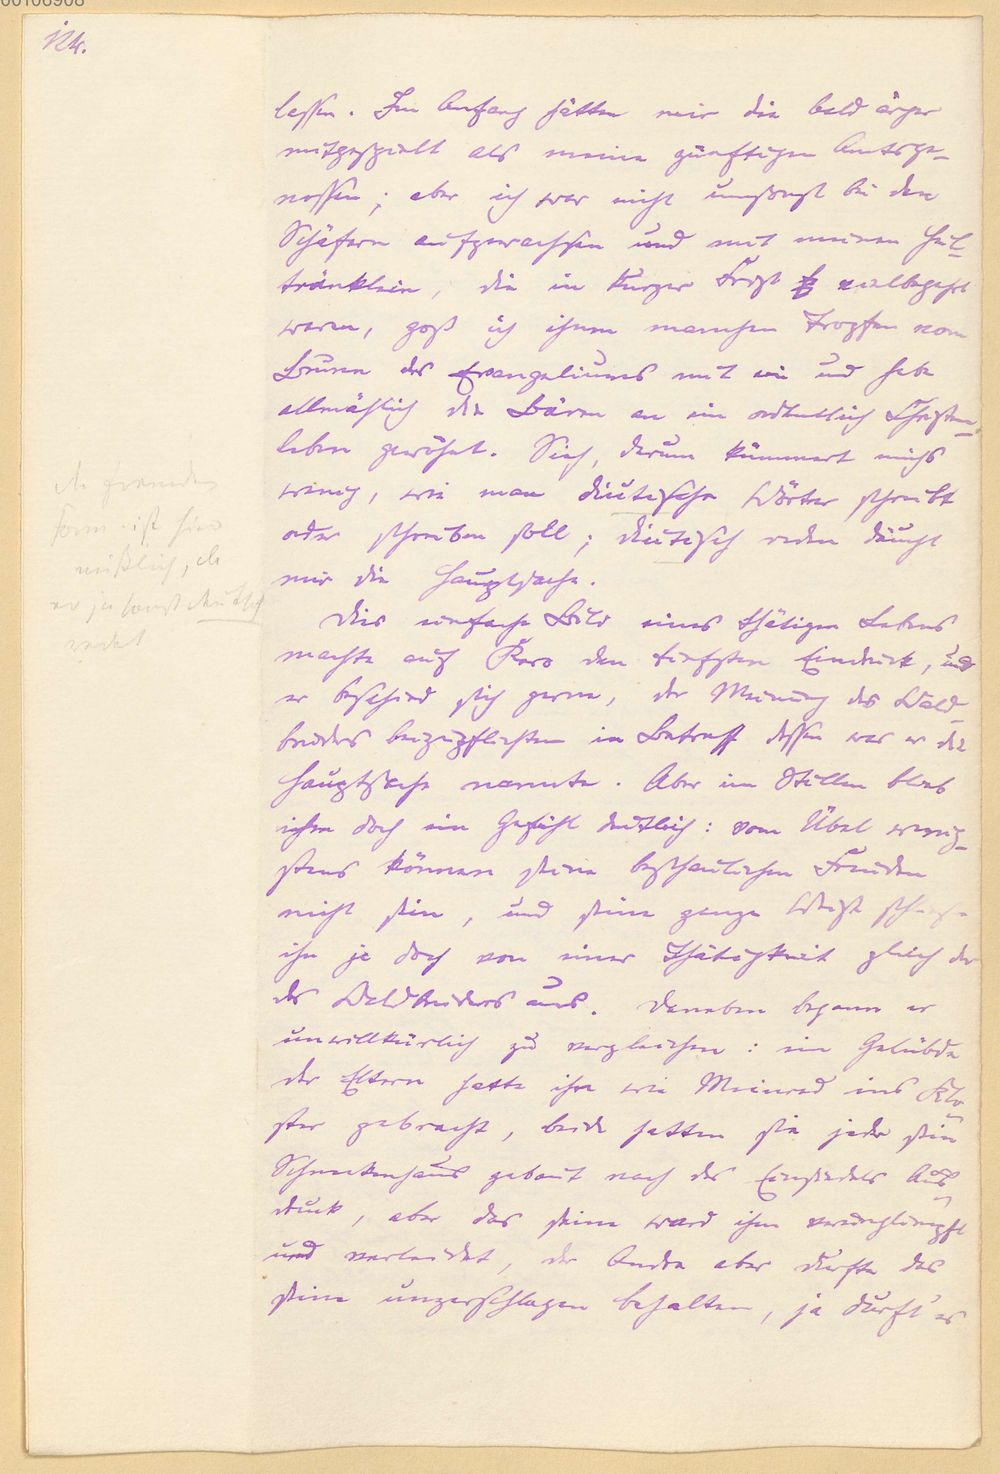 00106908
124.
lassen. Im Anfang hätten mir die bald ärger
mitgespielt als meine günstigen Amtsge-
nossen; aber ich war nicht umsonst bei den
Schäfern aufgewachsen und mit meinen Heil-
tränklein, die in kurzer Frist vielbegehrt
waren, goß ich ihnen manchen Tropfen vom
Brunn des Evangeliums mit ein und habe
allmählich die Bären an ein ordentlich Christen-
leben gewöhnt. Sieh, darum kümmert michs
wenig, wie man diutische Wörter schreibt
oder schreiben soll; diutisch reden däucht
mir die Hauptsache.
die fremde
Form ist hier
mißlich, da
er ja sonst deutsch
redet
Dies einfache Bild eines thätigen Lebens
machte auf Kero den tiefsten Eindruck, und
er beschied sich gerne, der Meinung des Wald-
bruders beizupflichten in Betreff dessen was er die
Hauptsache nannte. Aber im Stillen blieb
ihm doch ein Gefühl deutlich: vom Übel wenig-
stens können seine beschaulichen Freuden
nicht sein, und seine ganze Weise schließe
ihn je doch von einer Thätigkeit gleich der
des Waldbruders aus. Daneben begann er
unwillkürlich zu vergleichen: ein Gelübde
der Eltern hatte ihn wie Meinrad ins Klo-
ster gebracht, beide hatten sie jeder sein
Schneckenhaus gebaut nach des Einsiedels Aus-
druck, aber das seine ward ihm verunglimpft
und verleidet, der Andre aber durfte das
seine unzerschlagen behalten, ja durft' es